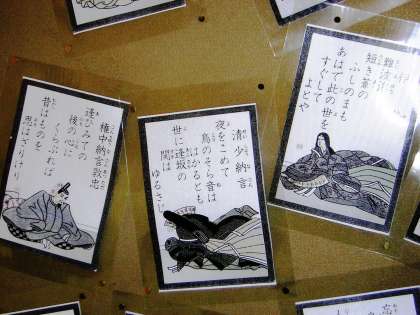 難波潟
短き蘆の
ふしのまも
あはで此の世を
すぐして
よとや
清少納言
夜をこめて
鳥のそら音は
はかるとも
世に逢坂の
関は
ゆるさじ
権中納言敦忠
逢ひみての
後の心に
くらぶれば
昔はものを
思はざりけり
忘